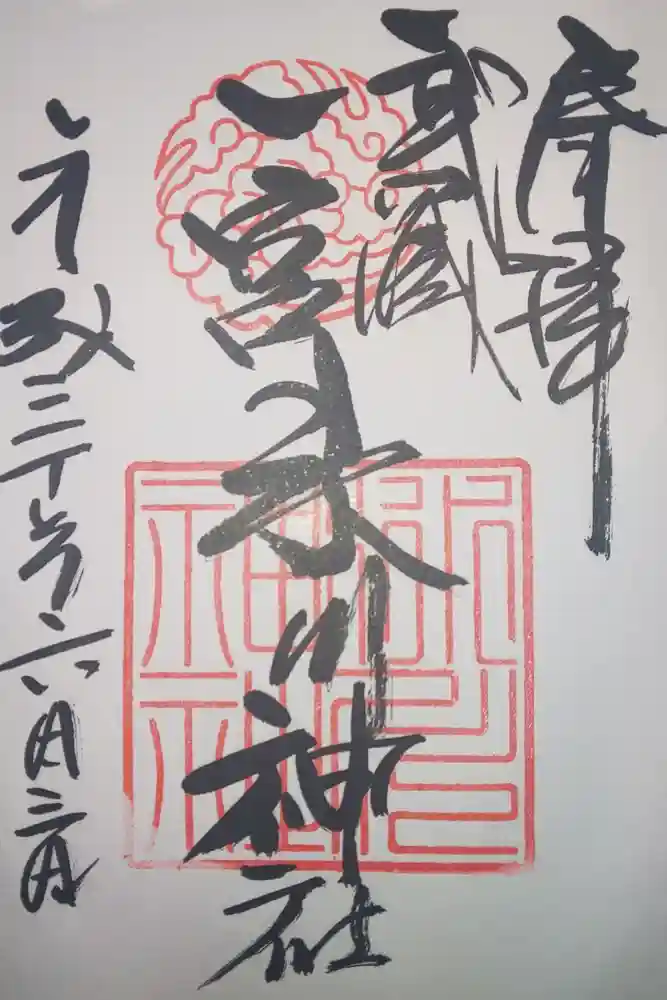 奉拝
武蔵
一宮氷川神社
平成三十年六月三日
氷川神社